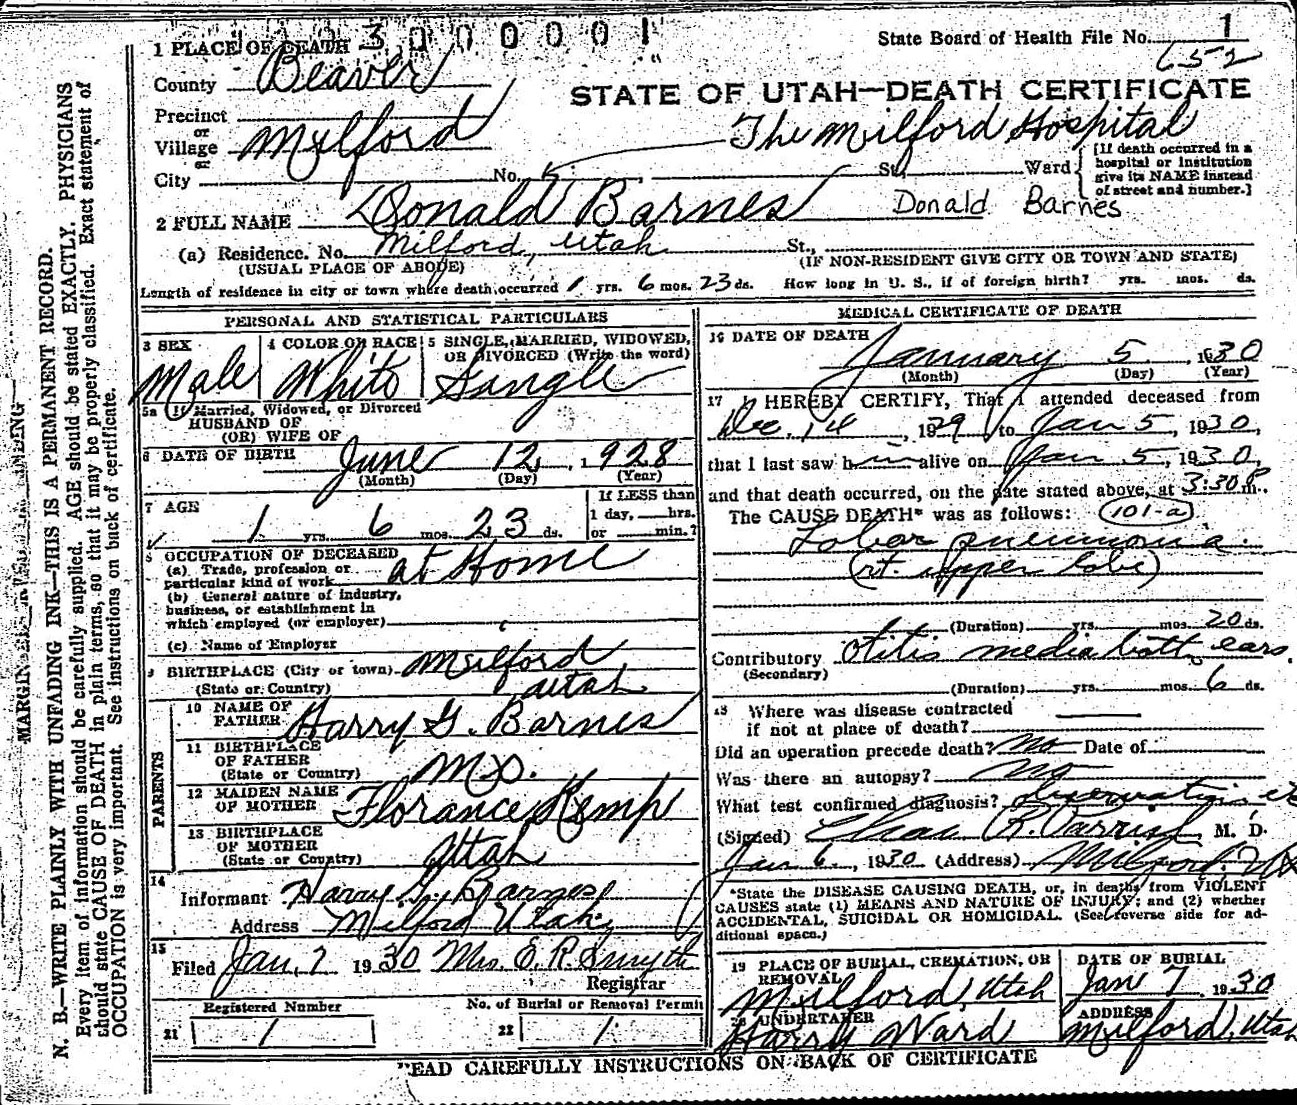 3000001
1 PLACE OF DEATH
State Board of Health File No. 1
652
County Beaver
STATE OF UTAH—DEATH CERTIFICATE
Precinct
or
Village Milford
or
The Milford Hospital
City No. St., Ward
[If death occurred in a
hospital or institution
give its NAME instead
of street and number.]
2 FULL NAME Donald Barnes Donald Barnes
(a) Residence. No. Milford, Utah St.,
(USUAL PLACE OF ABODE) (IF NON-RESIDENT GIVE CITY OR TOWN AND STATE)
Length of residence in city or town where death occurred 1 yrs. 6 mos. 23 ds. How long in U. S., if of foreign birth? yrs. mos. ds.
PERSONAL AND STATISTICAL PARTICULARS
3 SEX Male
4 COLOR OR RACE White
5 SINGLE, MARRIED, WIDOWED,
OR DIVORCED (Write the word)
Single
5a If Married, Widowed, or Divorced
HUSBAND OF
(OR) WIFE OF
6 DATE OF BIRTH June 12, 1928
(Month) (Day) (Year)
7 AGE
1 yrs. 6 mos. 23 ds.
If LESS than
1 day, hrs.
or min.?
8 OCCUPATION OF DECEASED
(a) Trade, profession or
particular kind of work at Home
(b) General nature of industry,
business, or establishment in
which employed (or employer)
(c) Name of Employer
9 BIRTHPLACE (City or town) Milford
(State or Country) Utah
PARENTS
10 NAME OF
FATHER Harry G. Barnes
11 BIRTHPLACE
OF FATHER
(State or Country) Mo.
12 MAIDEN NAME
OF MOTHER Florance Kemp
13 BIRTHPLACE
OF MOTHER
(State or Country) Utah
14
Informant Harry G. Barnes
Address Milford Utah
15
Filed Jan. 7 1930 Mrs. E. R. Smyth
Registrar
Registered Number
21 1
No. of Burial or Removal Permit
22 1
MEDICAL CERTIFICATE OF DEATH
16 DATE OF DEATH
January 5, 1930
(Month) (Day) (Year)
17 I HEREBY CERTIFY, That I attended deceased from
Dec. 14, 1929, to Jan 5, 1930,
that I last saw h im alive on Jan 5, 1930,
and that death occurred, on the date stated above, at 3:30 P m.
The CAUSE DEATH* was as follows: 101-a
Lobar pneumonia.
(rt. upper lobe)
(Duration) yrs. mos. 20 ds.
Contributory Otitis media both ears.
(Secondary)
(Duration) yrs. mos. 6 ds.
18 Where was disease contracted
if not at place of death?
Did an operation precede death? No Date of
Was there an autopsy? No
What test confirmed diagnosis? observation etc
(Signed) Chas R. Parrish, M. D.
Jan 6, 1930 (Address) Milford, Ut
*State the DISEASE CAUSING DEATH, or, in deaths from VIOLENT
CAUSES state (1) MEANS AND NATURE OF INJURY; and (2) whether
ACCIDENTAL, SUICIDAL OR HOMICIDAL. (See reverse side for ad-
ditional space.)
19 PLACE OF BURIAL, CREMATION, OR
REMOVAL
Milford, Utah
DATE OF BURIAL
Jan 7, 1930
20 UNDERTAKER
Harry Ward
ADDRESS
Milford, Utah
READ CAREFULLY INSTRUCTIONS ON BACK OF CERTIFICATE
MARGIN BINDING
N. B.—WRITE PLAINLY WITH UNFADING INK—THIS IS A PERMANENT RECORD.
Every item of information should be carefully supplied. AGE should be stated EXACTLY. PHYSICIANS
should state CAUSE OF DEATH in plain terms, so that it may be properly classified. Exact statement of
OCCUPATION is very important. See instructions on back of certificate.